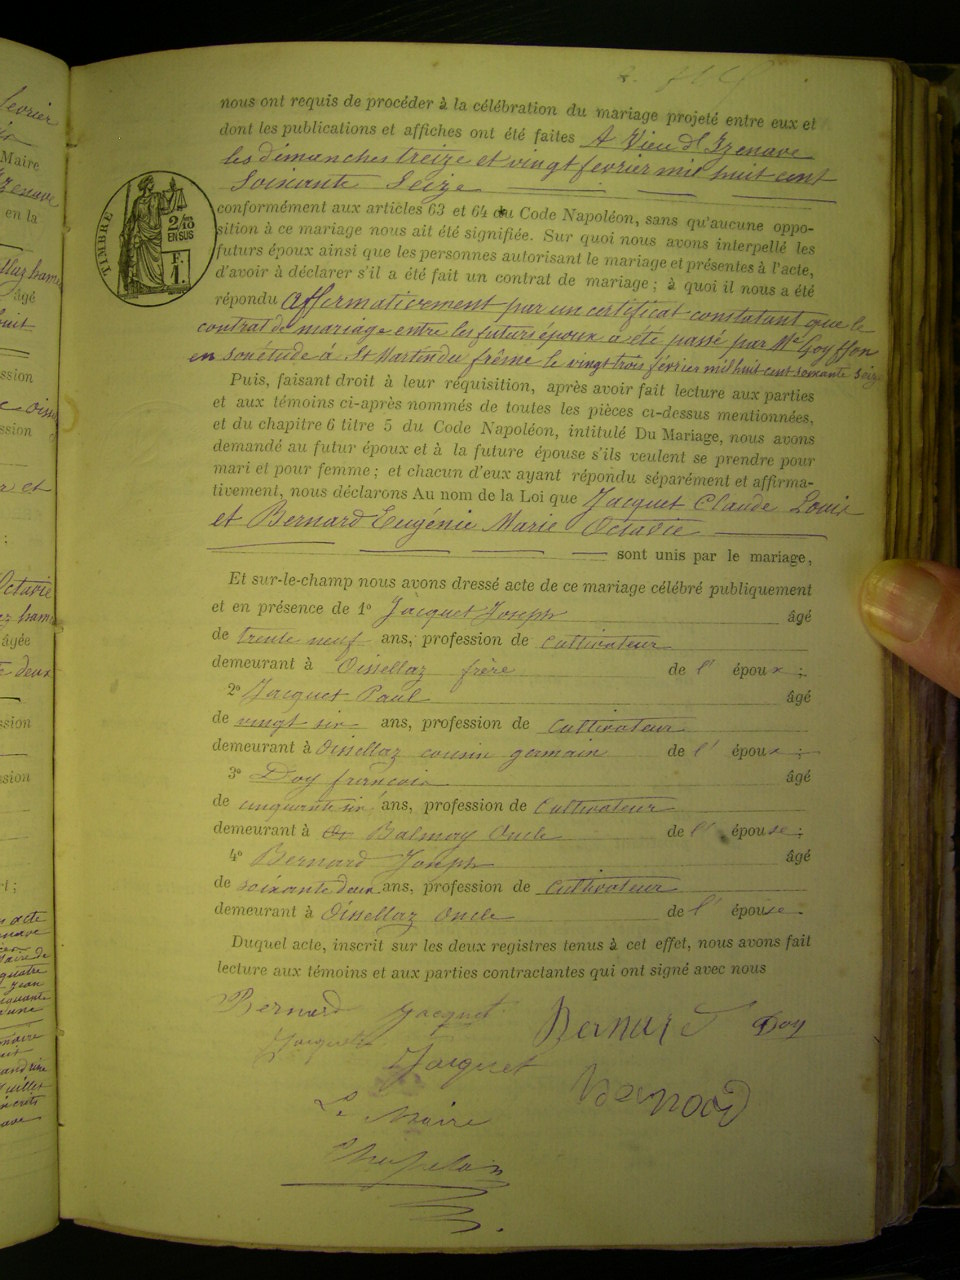 nous ont requis de procéder à la célébration du mariage projeté entre eux et
dont les publications et affiches ont été faites A Vieu d'Izenave
les dimanches treize et vingt fevrier mil huit cent
soixante seize
TIMBRE
2/10
EN SUS
F.
1.
conformément aux articles 63 et 64 du Code Napoléon, sans qu'aucune oppo-
sition à ce mariage nous ait été signifiée. Sur quoi nous avons interpellé les
futurs époux ainsi que les personnes autorisant le mariage et présentes à l'acte,
d'avoir à déclarer s'il a été fait un contrat de mariage ; à quoi il nous a été
répondu affirmativement par un certificat constatant que le
contrat de mariage entre les futurs époux a été passé par Me Goyffon
en son étude à St Martin du frêne le vingt trois février mil huit cent soixante seize
Puis, faisant droit à leur réquisition, après avoir fait lecture aux parties
et aux témoins ci-après nommés de toutes les pièces ci-dessus mentionnées,
et du chapitre 6 titre 5 du Code Napoléon, intitulé Du Mariage, nous avons
demandé au futur époux et à la future épouse s'ils veulent se prendre pour
mari et pour femme ; et chacun d'eux ayant répondu séparément et affirma-
tivement, nous déclarons Au nom de la Loi que Jacquet Claude Louis
et Bernard Eugénie Marie Octavie
sont unis par le mariage,
Et sur-le-champ nous avons dressé acte de ce mariage célébré publiquement
et en présence de 1º Jacquet Joseph âgé
de trente neuf ans, profession de Cultivateur
demeurant à Oissellaz frère de l' époux ;
2º Jacquet Paul âgé
de vingt six ans, profession de Cultivateur
demeurant à Oissellaz cousin germain de l' époux ;
3º Doy françois âgé
de cinquante six ans, profession de Cultivateur
demeurant à Balmay Oncle de l' épouse ;
4º Bernard Joseph âgé
de soixante deux ans, profession de Cultivateur
demeurant à Oissellaz Oncle de l' épouse.
Duquel acte, inscrit sur les deux registres tenus à cet effet, nous avons fait
lecture aux témoins et aux parties contractantes qui ont signé avec nous
Bernard Jacquet Bernard Doy
Jacquet
Jacquet Bernard
Le Maire